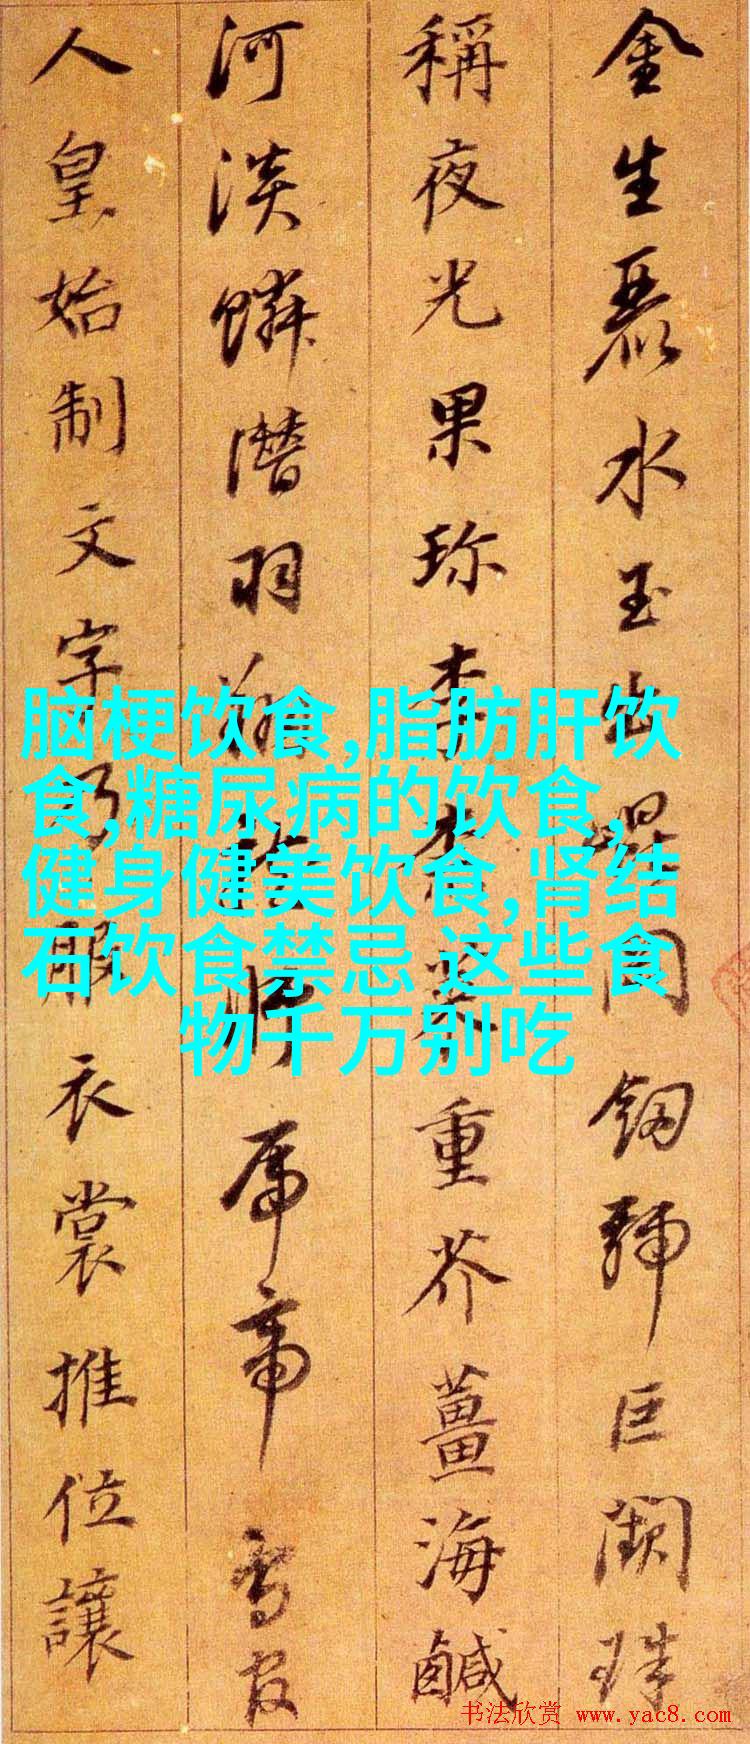 金生麗水玉出崐岡劒號巨闕珠
稱夜光果珎李柰菜重芥薑海鹹
河淡鱗潛羽翔龍師帝鳥官
人皇始制文字乃服衣裳推位讓
脑梗饮食,脂肪肝饮
食,糖尿病的饮食,
健身健美饮食,肾结
石饮食禁忌 这些食
物千万别吃
书法欣赏 www.yac8.com